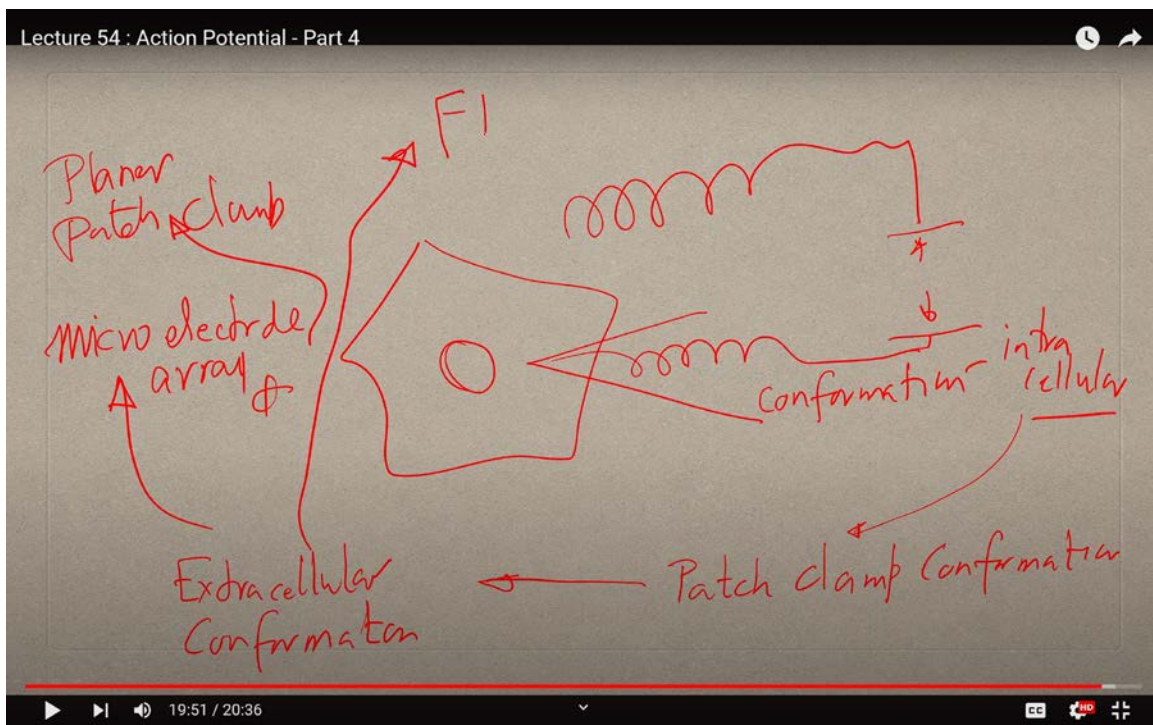 Lecture 54 : Action Potential - Part 4
FI
Planer
Patch clamb
micro electrde
array
conformation
intra
cellular
Extracellular
Conformaton
Patch clamp Conformation
19:51 / 20:36
CC
HD